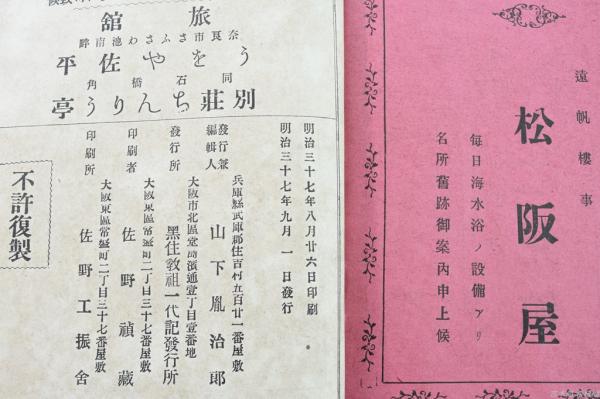 遠帆樓事
松阪屋
毎日海水浴ノ設備アリ
名所舊跡御案內申上候
旅館
奈良市さふさわ池南畔
うをや佐平
同石橋角
別莊ちんりう亭
明治三十七年八月廿六日印刷
明治三十七年九月一日發行
發行兼編輯人
兵庫縣武庫郡住吉村五百廿一番屋敷
山下胤治郎
發行所
大阪市北區堂島濱通壹丁目壹番地
黑住敎祖一代記發行所
印刷者
大阪東區常盤町二丁目三十七番屋敷
佐野禎藏
印刷所
大阪東區常盤町二丁目三十七番屋敷
佐野工振舍
不許復製